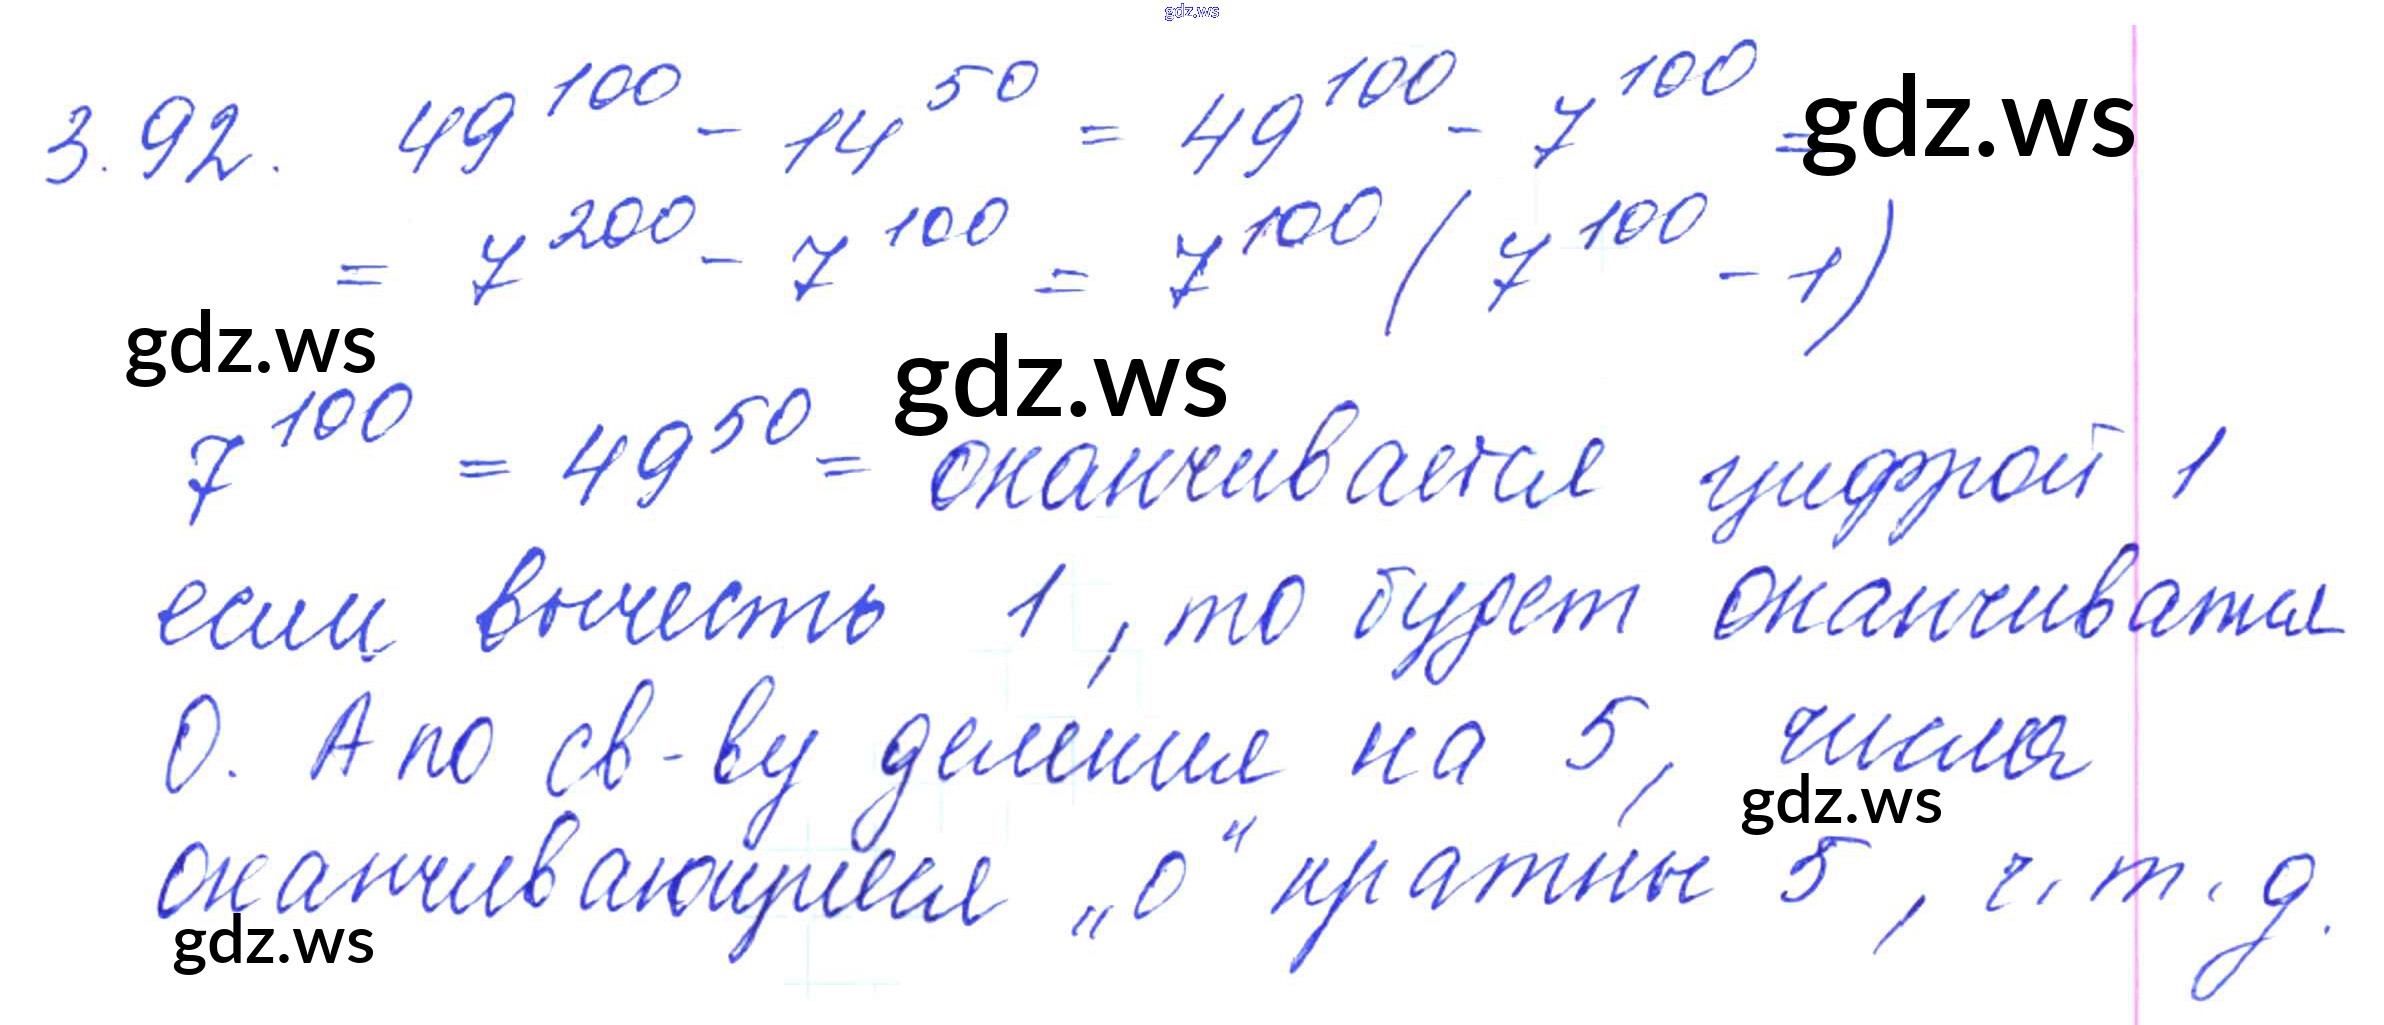 gdz.ws
3.92. 49^100 - 14^50 = 49^100 - 7^100 =
gdz.ws
= 7^200 - 7^100 = 7^100 (7^100 - 1)
gdz.ws
gdz.ws
7^100 = 49^50 = оканчивается цифрой 1
если вычесть 1, то будет оканчиватся
0. А по св-ву деления на 5, числа
gdz.ws
оканчивающиеся „0“ кратны 5, ч.т.д.
gdz.ws